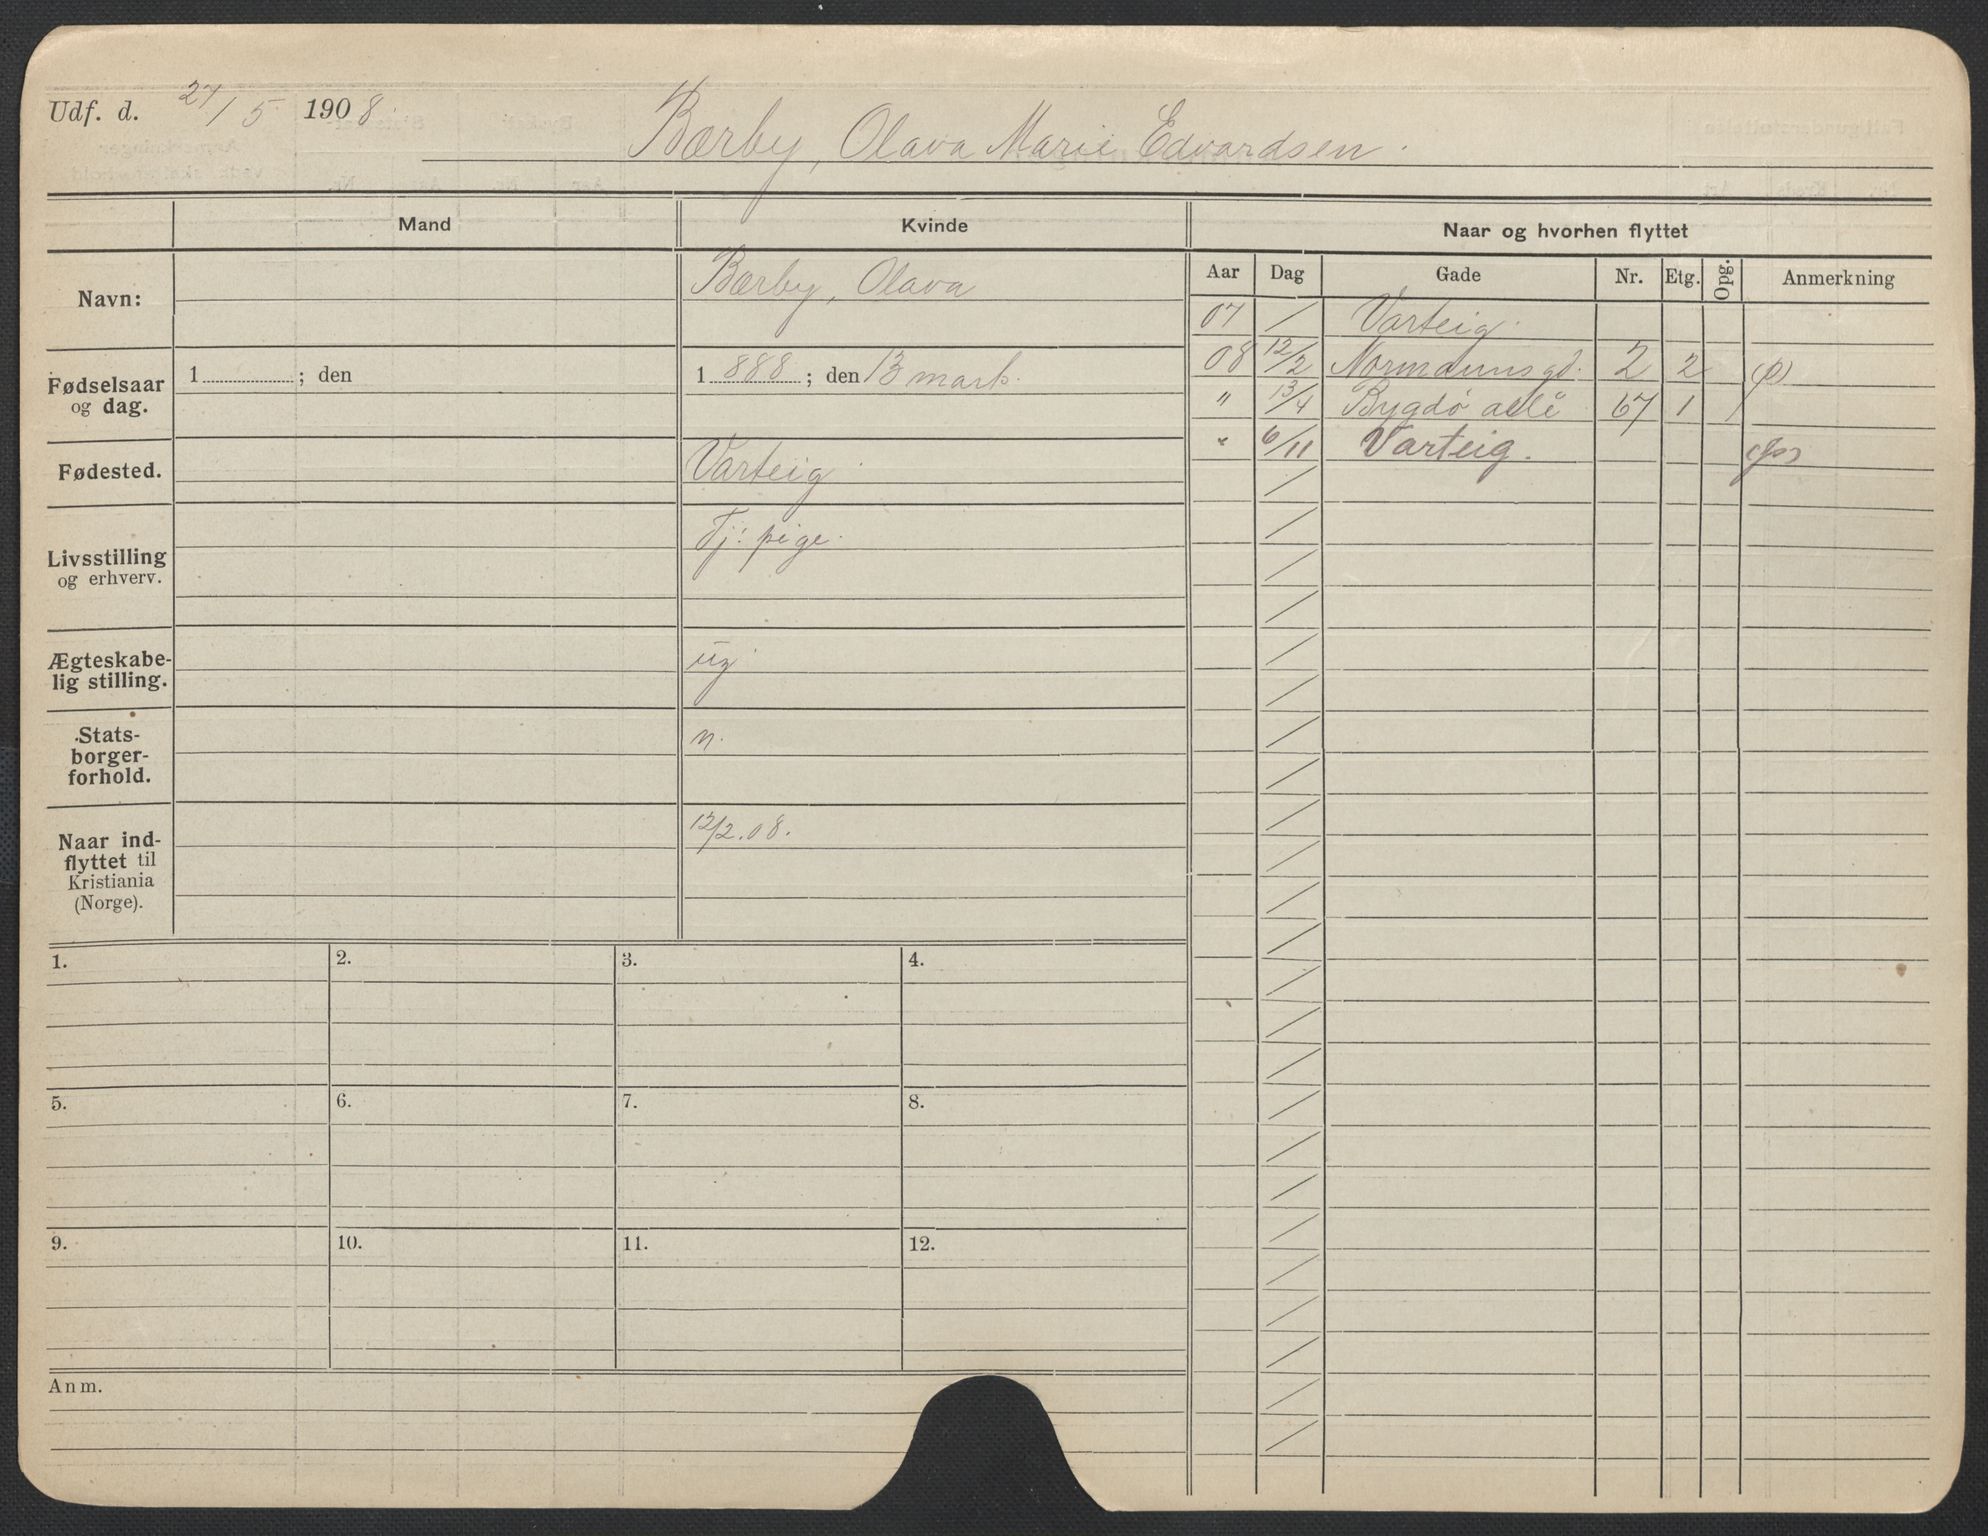 Udf. d. 27/5 1908.
Bærby, Olava Marie Edvardsen.
Mand
Kvinde
Naar og hvorhen flyttet
Aar Dag Gade Nr. Etg. Opg. Anmerkning
Navn:
Bærby, Olava
Fødselsaar
og dag.
1 ; den
1 888 ; den 13 marts.
Fødested.
Varteig
Livsstilling
og erhverv.
Tj: pige.
Ægteskabe-
lig stilling.
ug
Stats-
borger-
forhold.
n.
Naar ind-
flyttet til
Kristiania
(Norge).
12/2.08.
07 / Varteig.
08 12/2 Normannsgd. 2 2 (p)
" 13/4 Bygdø allé 67 1 /
" 6/11 Varteig.
1. 2. 3. 4.
5. 6. 7. 8.
9. 10. 11. 12.
Anm.